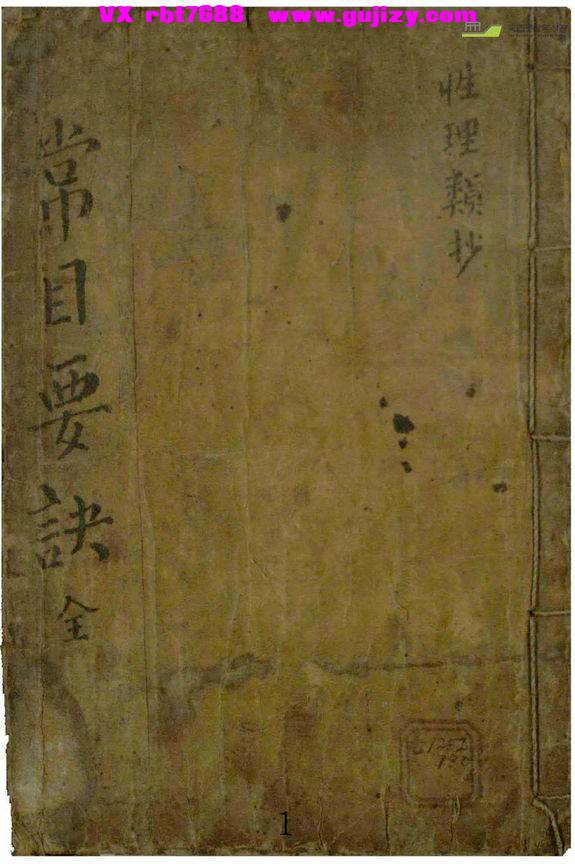 VX rbt7688 www.gujizy.com
性理類抄
常目要訣 全
1